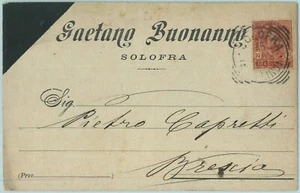 Gaetano Buonanno
SOLOFRA
Sig.
Pietro Capretti
Brescia
(Prov.